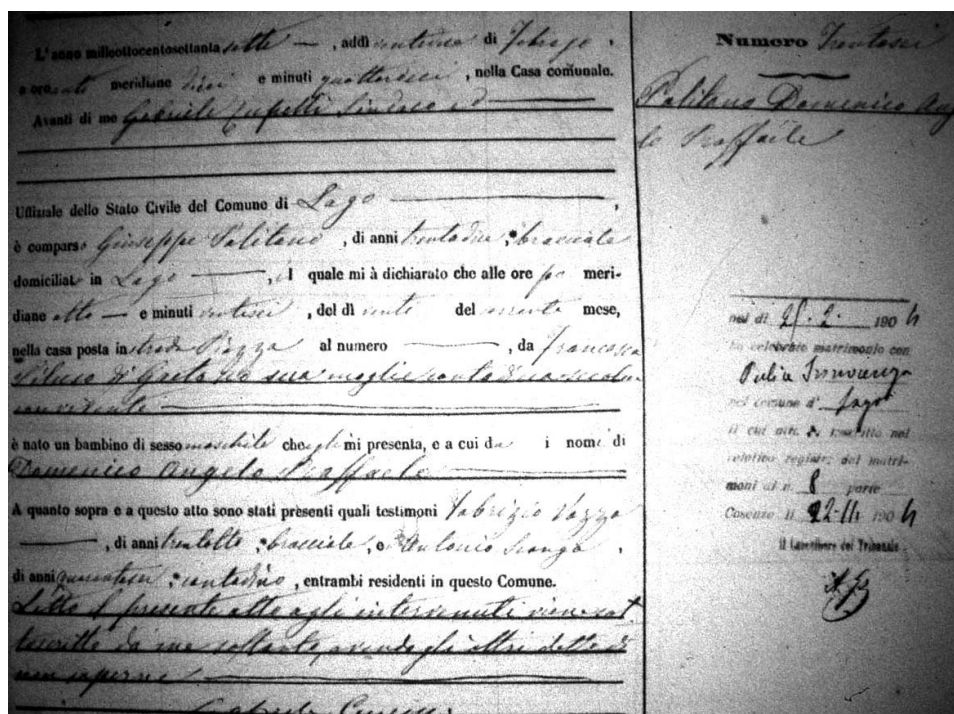 L'anno milleottocentosettanta sette — , addì ventuno di Febrajo ,
a ore anti meridiane dieci e minuti quattordeci , nella Casa comunale.
Avanti di me Gabriele Cupelli Sindaco ed
Uffiziale dello Stato Civile del Comune di Lago ,
è comparso Giuseppe Politano , di anni trentadue , bracciale
domiciliato in Lago , il quale mi à dichiarato che alle ore po meri-
diane otto — e minuti ventisei , del dì venti del corrente mese,
nella casa posta in strada Piazza al numero , da Francesca
di Gaetano sua moglie contadina seco lui
convivente
è nato un bambino di sesso maschile che egli mi presenta, e a cui da i nomi di
Domenico Angelo Raffaele
A quanto sopra e a questo atto sono stati presenti quali testimoni Fabrizio
, di anni trentotto , bracciale , e Antonio Scanga ,
di anni quarantasei , contadino , entrambi residenti in questo Comune.
Letto il presente atto agli intervenuti viene sot
toscritto da me soltanto, avendo gli altri detto di
non saperne
Gabriele
Numero Trentasei
Politano Domenico Ang
lo Raffaele
nel dì 25-2- 1904
ha celebrato matrimonio con
Pulia Innocenza
nel comune di Lago
il cui atto è trascritto nel
relativo registro dei matri-
moni al n. 8 parte
Cosenza lì 22-11 1904
Il Cancelliere del Tribunale